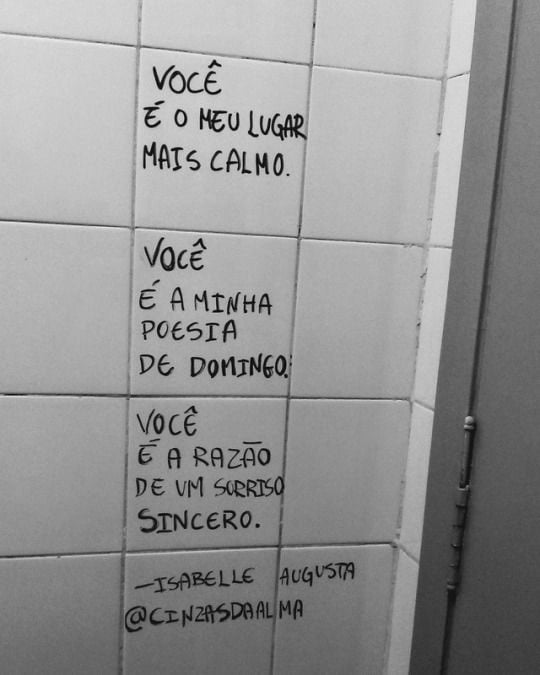 VOCÊ
É O MEU LUGAR
MAIS CALMO.
VOCÊ
É A MINHA
POESIA
DE DOMINGO.
VOCÊ
É A RAZÃO
DE UM SORRISO
SINCERO.
—ISABELLE AUGUSTA
@CINZASDAALMA